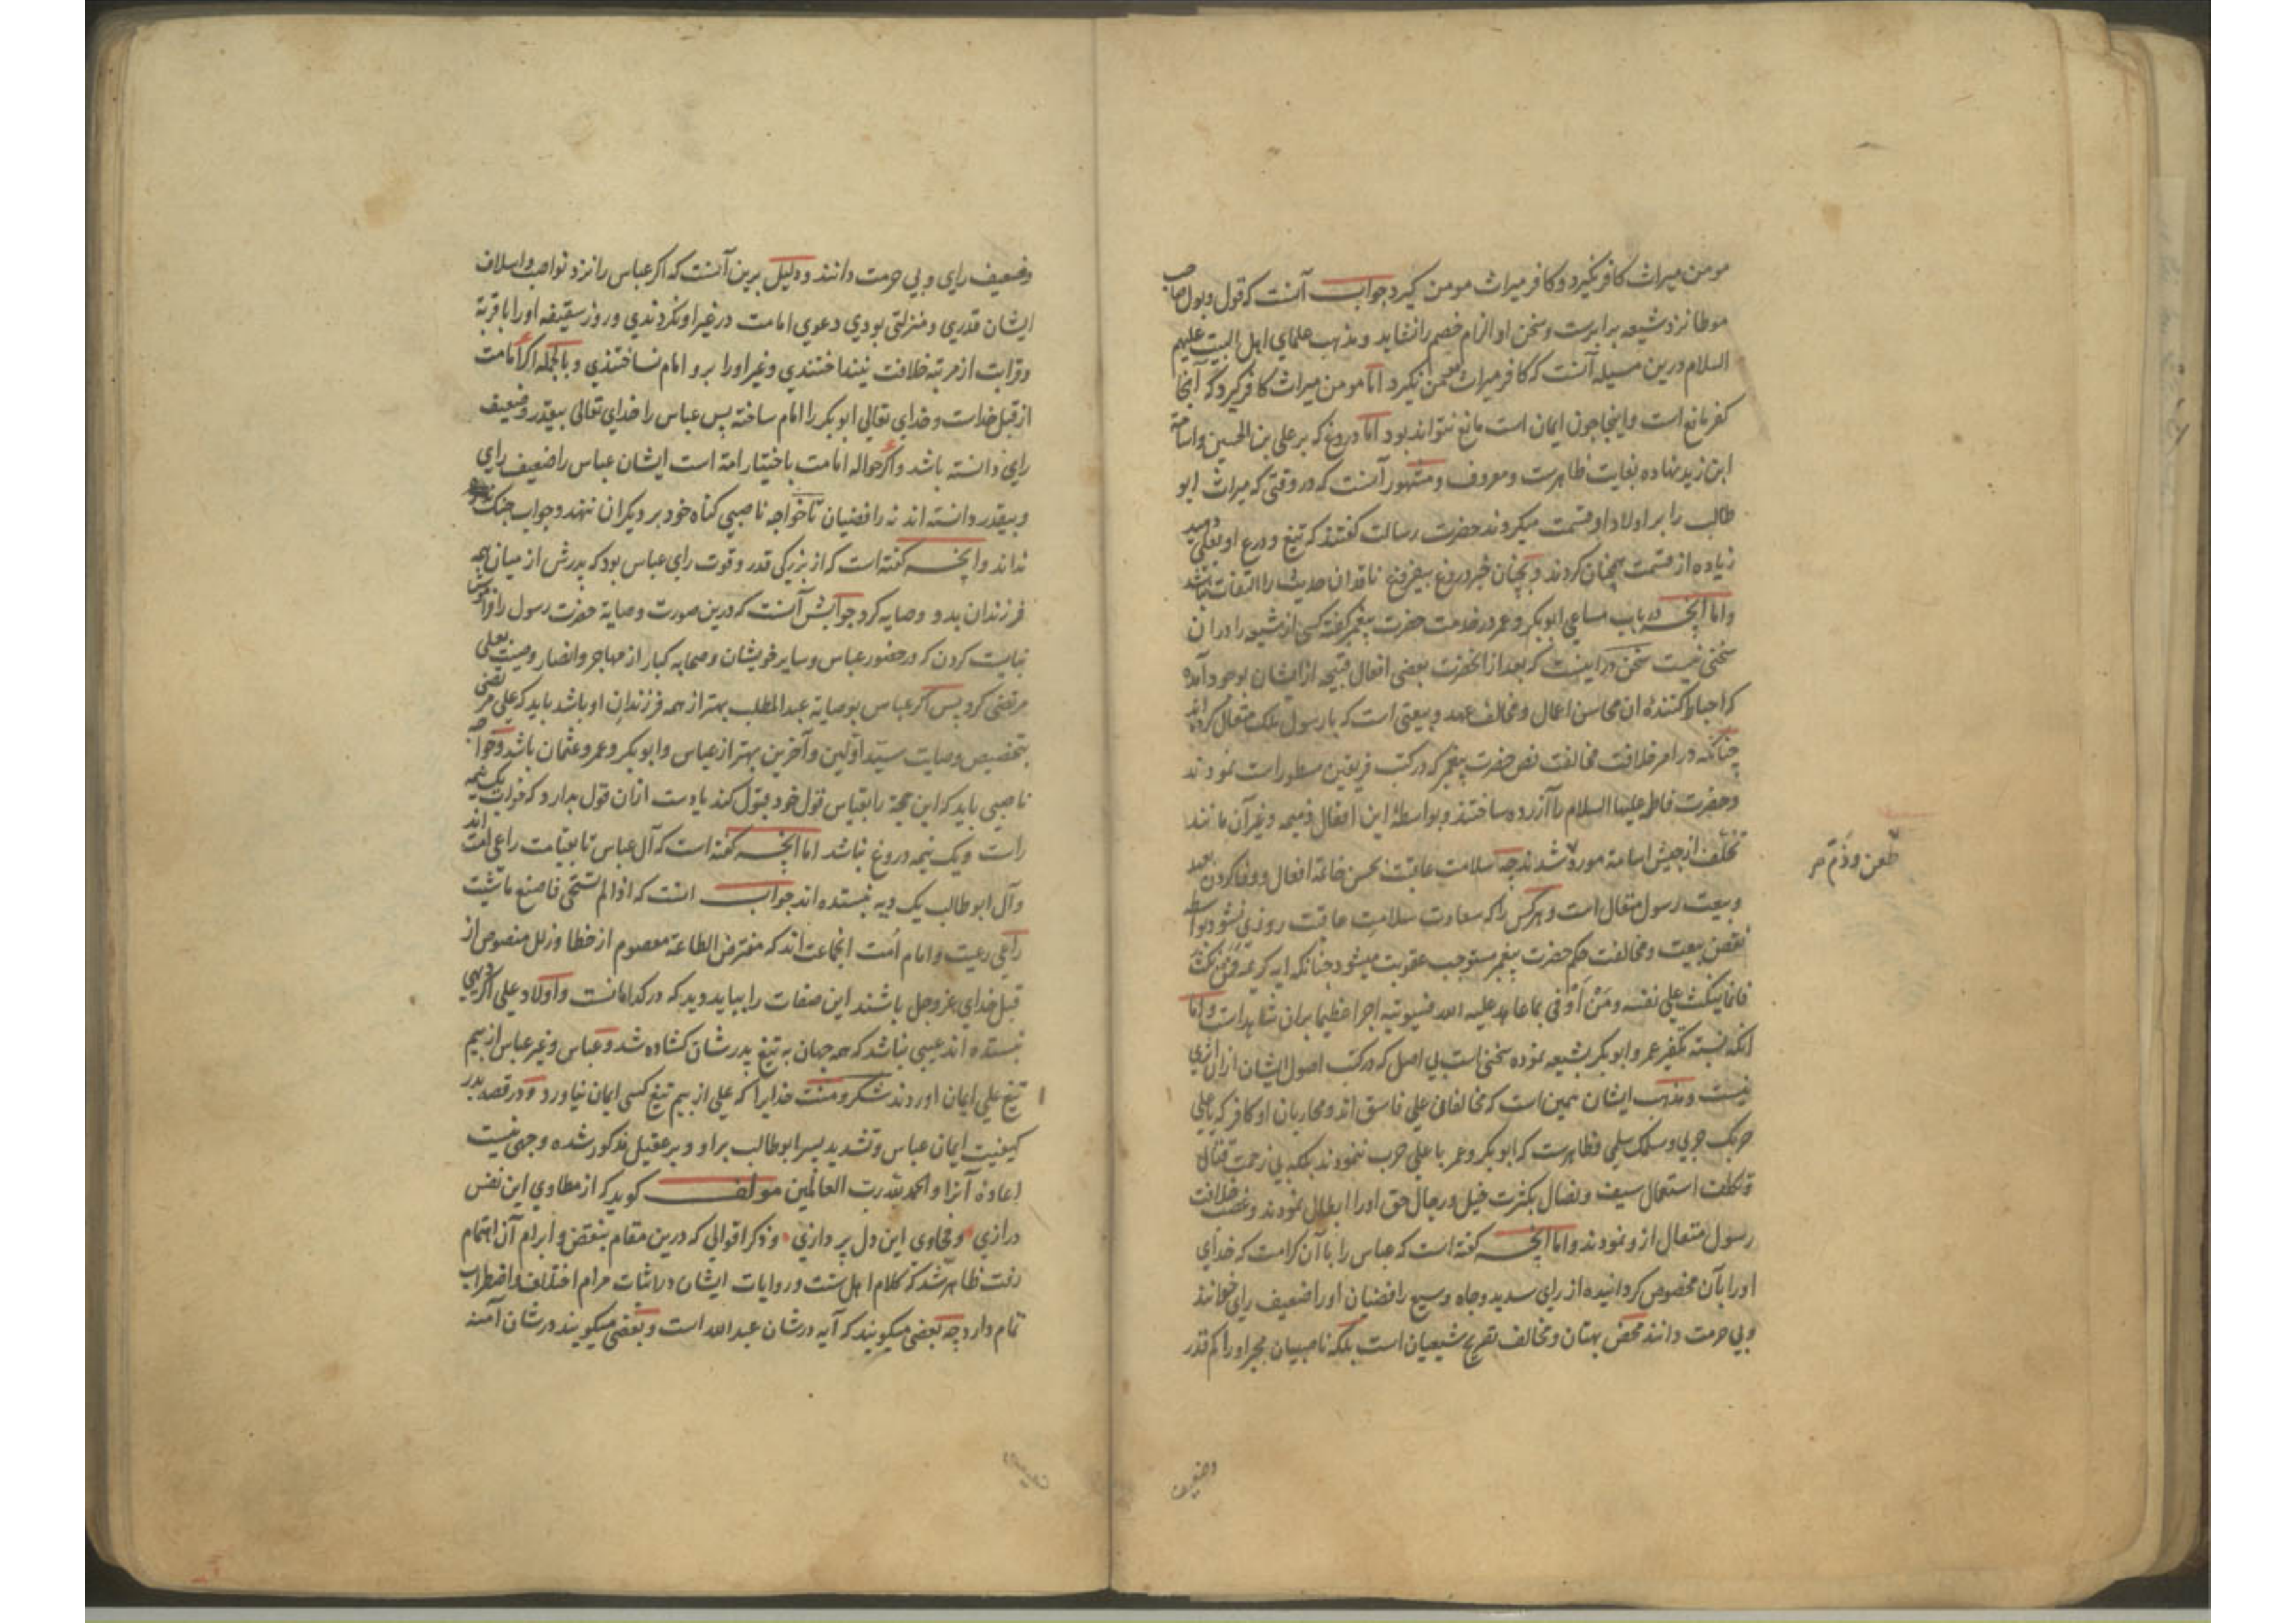 مومن میراث کافر نگیرد و کافر میراث مومن گیرد جواب آنست که قول و بول صاحب
موطا نزد شیعه برابرست و سخن او الزام خصم را نشاید و مذهب علمای اهل البیت علیهم
السلام درین مسیله آنست که کافر میراث مومن نگیرد اما مومن میراث کافر گیرد که آنجا
کفر مانع است و اینجا چون ایمان است مانع نتواند بود اما دروغ که بر علی بن الحسین و اسامة
ابن زید نهاده بغایت ظاهرست و معروف و مشهور آنست که در وقتی که میراث ابو
طالب را بر اولاد او قسمت میکردند حضرت رسالت گفتند که تیغ و درع او بعلی دهید
زیاده از قسمت همچنان کردند و بچنان خبر دروغ بیفروغ ناقدان حدیث را التفات نباشد
و اما آنچه در باب مساعی ابوبکر و عمر در خدمت حضرت پیغمبر گفته کسی از شیعه را در ان
سخنی نیست سخن در اینست که بعد از انحضرت بعضی افعال قبیحه از ایشان بوجود آمده
که احباط کنندۀ ان محاسن اعمال و مخالف عهد و بیعتی است که با رسول ملک متعال کرده اند
چنانکه در امر خلافت مخالفت نص حضرت پیغمبر که در کتب فریقین مسطور است نمودند
و حضرت فاطمه علیها السلام را آزرده ساختند و بواسطۀ این افعال ذمیمه و غیر آن مانند
تخلف از جیش اسامة مورد شدند چه سلامت عاقبت بحسن خاتمۀ افعال و وفا کردن بعهد
و بیعت رسول متعال است و هر کس را که سعادت سلامت عاقبت روزی نشود بواسطه
نقض بیعت و مخالفت حکم حضرت پیغمبر مستوجب عقوبت میشود چنانکه ایه کریمه فَمَن نَکَثَ
فانما ینکث علی نفسه ومَنْ اَوْفی بما عاهد علیه الله فسیوتیه اجرا عظیما بران شاهد است و اما
آنکه نسبت تکفیر عمر و ابوبکر بشیعه نموده سخنی است بی اصل که در کتب اصول ایشان از ان اثری
نیست و مذهب ایشان همین است که مخالفان علی فاسق اند و محاربان او کافر که یا علی
حربک حربی و سلمک سلمی و ظاهرست که ابوبکر و عمر با علی حرب ننمودند بلکه بی زحمت قتال
و تکلف استعمال سیف و نصال بکثرت خیل و رجال حق او را ابطال نمودند و غصب خلافت
رسول متعال ازو نمودند و اما آنچه گفته است که عباس را با آن کرامت که خدای
او را بآن مخصوص گردانیده از رای سدید و جاه وسیع رافضیان او را ضعیف رای خوانند
و بی حرمت دانند محض بهتان و مخالف تقریح شیعیان است بلکه ناصبیان مجبر او را کم قدر
طعن و ذَمّ
وضعیف
وضعیف رای و بی حرمت دانند و دلیل برین آنست که اگر عباس را نزد نواصب و اسلاف
ایشان قدری و منزلتی بودی دعوی امامت در غیر او نکردندی و روز سقیفه او را با قربة
و قرابت از مرتبه خلافت نینداختندی و غیر او را برو امام نساختندی و بالجمله اگر امامت
از قبل خداست و خدای تعالی ابوبکر را امام ساخته پس عباس را خدای تعالی بیقدر و ضعیف
رای دانسته باشد و اگر حواله امامت باختیار امة است ایشان عباس را ضعیف رای
و بیقدر دانسته اند نه رافضیان تا خواجه ناصبی گناه خود بر دیگران ننهد و جواب جنک
نداند و آنچه گفته است که از بزرگی قدر و قوت رای عباس بود که پدرش از میان همه
فرزندان بدو وصایه کرد جوابش آنست که درین صورت وصایة حضرت رسول را
نبایست کردن که در حضور عباس و سایر خویشان و صحابه کبار از مهاجر و انصار وصیت بعلی
مرتضی کرد پس اگر عباس بوصایة عبد المطلب بهتر از همه فرزندان او باشد باید که علی مرتضی
بتخصیص وصایت سیّد اولین و آخرین بهتر از عباس و ابوبکر و عمر و عثمان باشد و خواجه
ناصبی باید که این حجة را بقیاس قول خود قبول کند یا دست از ان قول بدارد که یک نیمه
راست و یک نیمه دروغ نباشد اما آنچه گفته است که آل عباس تا بقیامت راعی امت اند
و آل ابو طالب یک دیه نستده اند جواب انست که اذا لم تستحی فاصنع ما شئت
راعی رعیت و امام اُمت انجماعت اند که مفترض الطاعة معصوم از خطا و زلل منصوص از
قبل خدای عز و جل باشند این صفات را بباید دید که در کدامانست و اولاد علی اگر دیهی
نستده اند عیبی نباشد که همه جهان به تیغ پدرشان گشاده شد و عباس و غیر عباس از بیم
تیغ علی ایمان اوردند شکر و منت خدایرا که علی از بیم تیغ کسی ایمان نیاورد و در قصه بدر
کیفیت ایمان عباس و تشدید پسر ابو طالب بر او و بر عقیل مذکور شده وجهی نیست
اعادۀ آنرا و الحمد لله رب العالمین مولف گوید که از مطاوی این نفس
درازی و فحاوی این دل پردازی و ذکر اقوالی که درین مقام بنقض و ابرام آن اهتمام
رفت ظاهر شد که کلام اهل سنت و روایات ایشان در اثبات مرام اختلاف و اضطراب
تمام دارد چه بعضی میگویند که آیه در شان عبد الله است و بعضی میگویند در شان آمنه